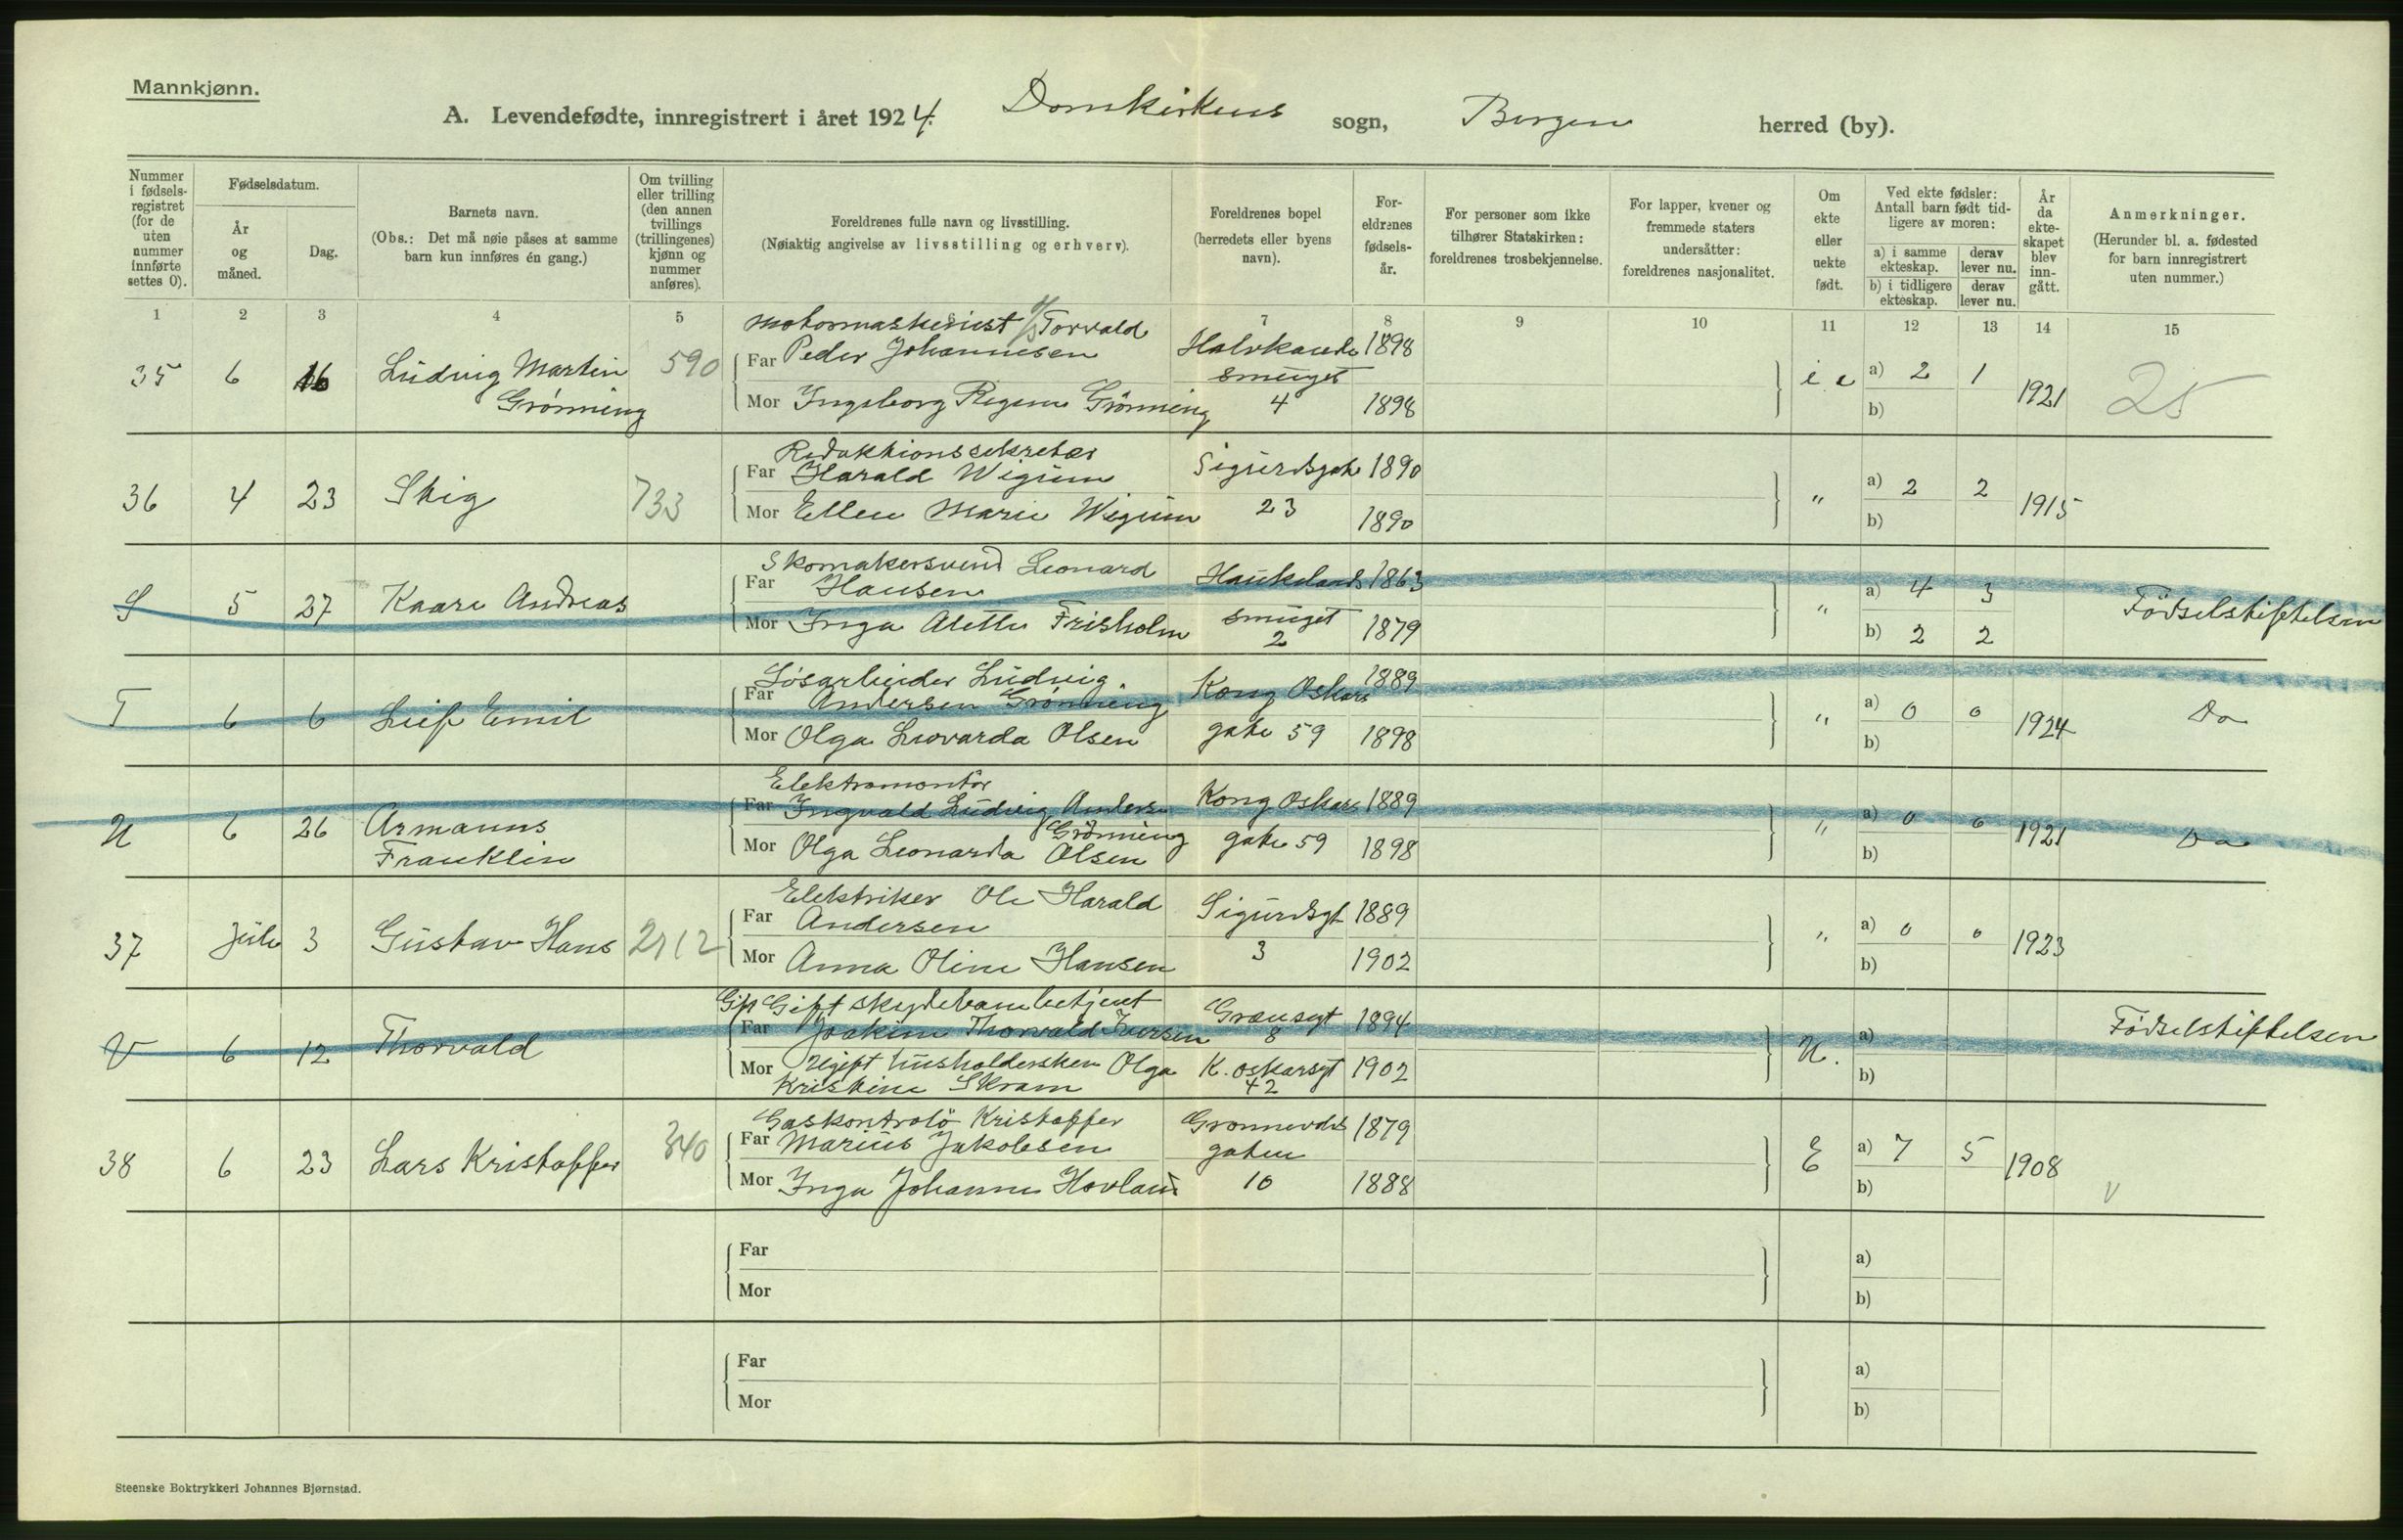 Mannkjønn.
A. Levendefødte, innregistrert i året 1924. Domkirkens sogn, Bergen herred (by).
Nummer i fødsels- registret (for de uten nummer innførte settes 0).
Fødselsdatum.
År og måned.
Dag.
Barnets navn.
(Obs.: Det må nøie påses at samme barn kun innføres én gang.)
Om tvilling eller trilling (den annen tvillings (trillingenes) kjønn og nummer anføres).
Foreldrenes fulle navn og livsstilling.
(Nøiaktig angivelse av livsstilling og erhverv).
Foreldrenes bopel (herredets eller byens navn).
For- eldrenes fødsels- år.
For personer som ikke tilhører Statskirken: foreldrenes trosbekjennelse.
For lapper, kvener og fremmede staters undersåtter: foreldrenes nasjonalitet.
Om ekte eller uekte født.
Ved ekte fødsler: Antall barn født tid- ligere av moren:
a) i samme ekteskap. derav lever nu.
b) i tidligere ekteskap. derav lever nu.
År da ekte- skapet blev inn- gått.
Anmerkninger.
(Herunder bl. a. fødested for barn innregistrert uten nummer.)
1 2 3 4 5 7 8 9 10 11 12 13 14 15
Torvald
35 6 16 Ludvig Martin 590 Far Peder Johannesen 1898
Grönning smuget
Mor Ingeborg Grönning 4 1898
a) 2 1 1921 25
b)
Redaktionssekretær
36 4 23 Stig 733 Far Harald Wigum Sigurdsgate 1890
Mor Ellen Marie Wigum 23 1890
" a) 2 2 1915
b)
Skomakersvend Leonard
S 5 27 Kaare Andreas Far Hansen Haukelands 1863
Mor Inga Alette Frisholm smuget 2 1879
" a) 4 3 Födselstiftelsen
b) 2 2
Løsarbeider Ludvig
T 6 6 Leif Emil Far Andersen Grönning Kong Oskars 1889
Mor Olga Leonarda Olsen gate 59 1898
" a) 0 0 1924 Do
b)
Elektromontör
U 6 26 Armanns Far Ingvald Ludvig Andersen Kong Oskars 1889
Franklin Grönning
Mor Olga Leonarda Olsen gate 59 1898
" a) 0 0 1921 Do
b)
Elektriker Ole Harald
37 Juli 3 Gustav Hans 2112 Far Andersen Sigurdsgt 1889
Mor Anna Oline Hansen 3 1902
" a) 0 0 1923
b)
Gift Gift
V 6 12 Thorvald Far Joakim Thorvald Iversen 8 1894
Mor Ugift husholderske Olga K. Oskarsgt 1902
Kristine Skram 42
U. a) Födselstiftelsen
b)
Gaskontrolö Kristoffer
38 6 23 Lars Kristoffer 340 Far Marius Jakobsen 1879
gaten
Mor Inga Johanne Hovland 10 1888
E a) 7 5 1908 V
b)
Far
Mor
a)
b)
Far
Mor
a)
b)
Steenske Boktrykkeri Johannes Bjørnstad.